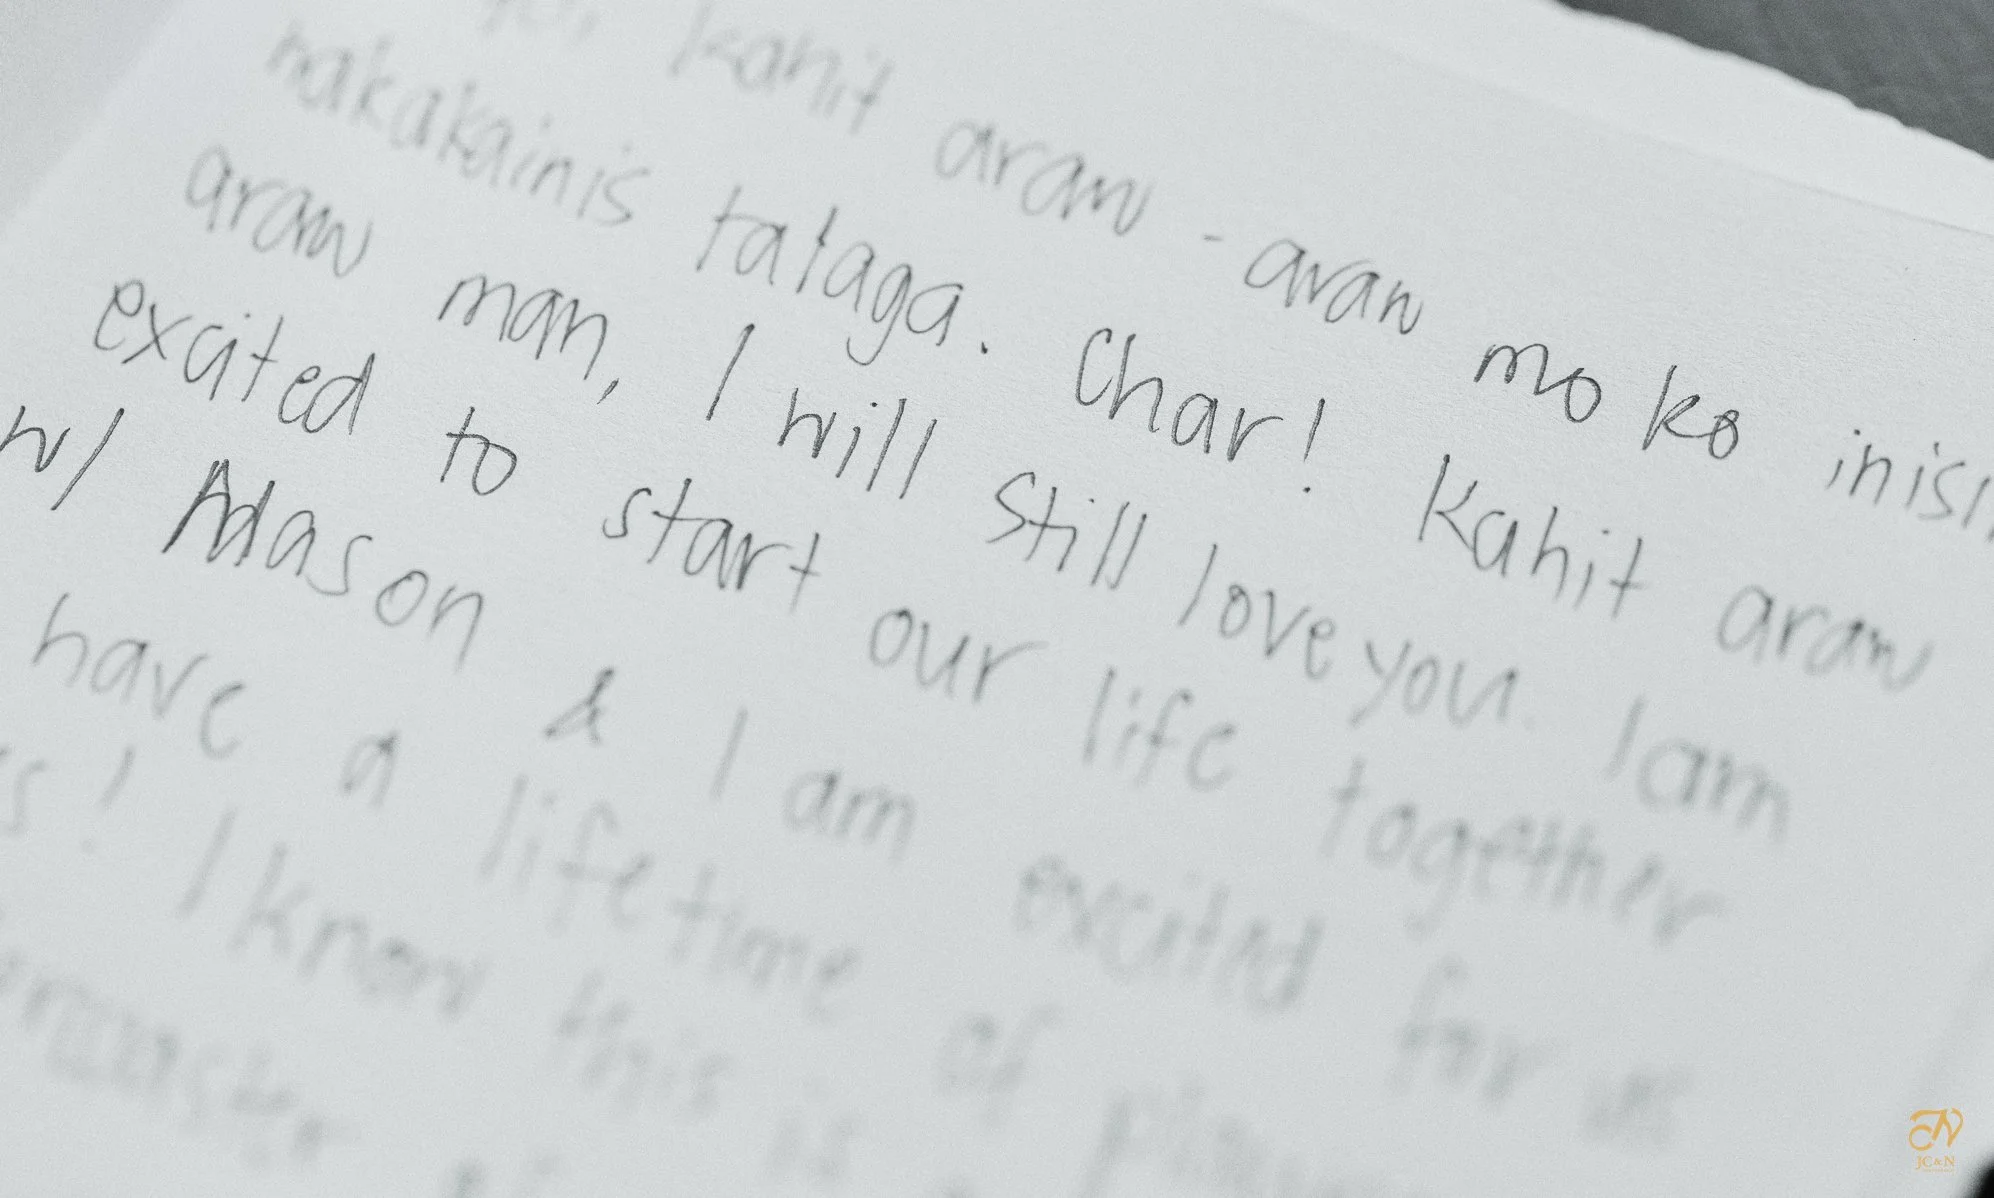 kahit araw-araw mo ko inisi
nakakainis talaga. Char! Kahit araw
araw man, I will still love you. I am
excited to start our life together
w/ Mason & I am excited for us
have a lifetime of
s! I know this is
JC&N